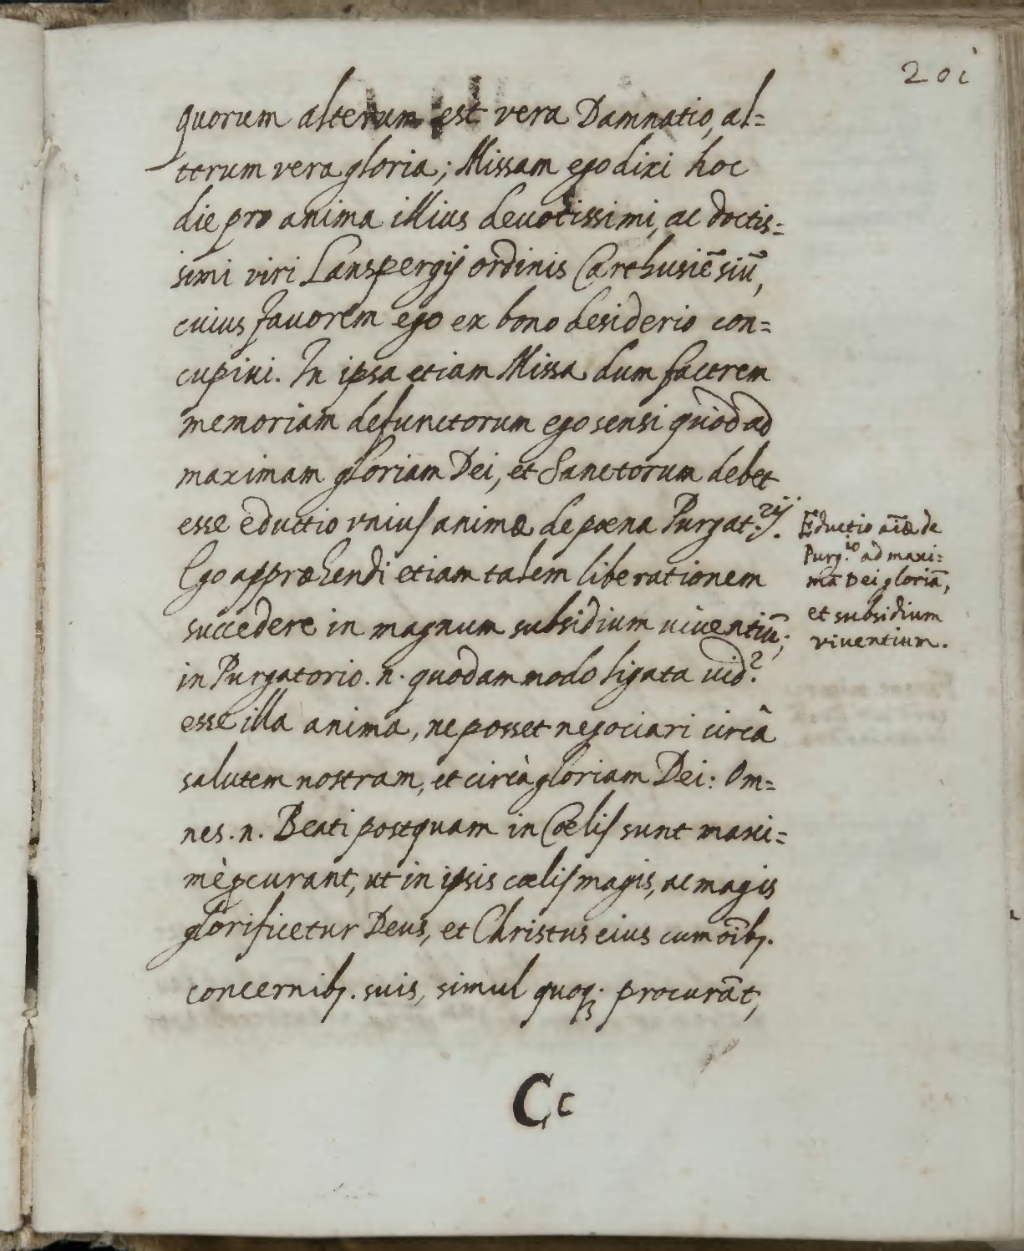 201
quorum alterum est vera Damnatio, al=
terum vera gloria; Missam ego dixi hoc
die pro anima illius devotissimi, ac doctis=
simi viri Lanspergij ordinis Carthusiẽsiũ,
cuius favorem ego ex bono desiderio con=
cupivi. In ipsa etiam Missa dum facerem
memoriam defunctorum ego sensi quòd ad
maximam gloriam Dei, et Sanctorum debet
esse eductio unius animæ de pœna Purgat.rij.
Ego appræhendi etiam talem liberationem
succedere in magnum subsidium viventiũ;
in Purgatorio .n. quodammodo ligata vid.r
esse illa anima, ne posset negociari circà
salutem nostram, et circà gloriam Dei: Om=
nes .n. Beati postquam in Cœlis sunt maxi=
mè curant, ut in ipsis cœlis magis, ac magis
glorificetur Deus, et Christus eius cum oĩbꝫ.
concernibꝫ. suis, simul quoqꝫ procurãt,
Eductio aĩæ de
Purg.io ad maxi=
mã Dei gloriã,
et subsidium
viventium.
Cc